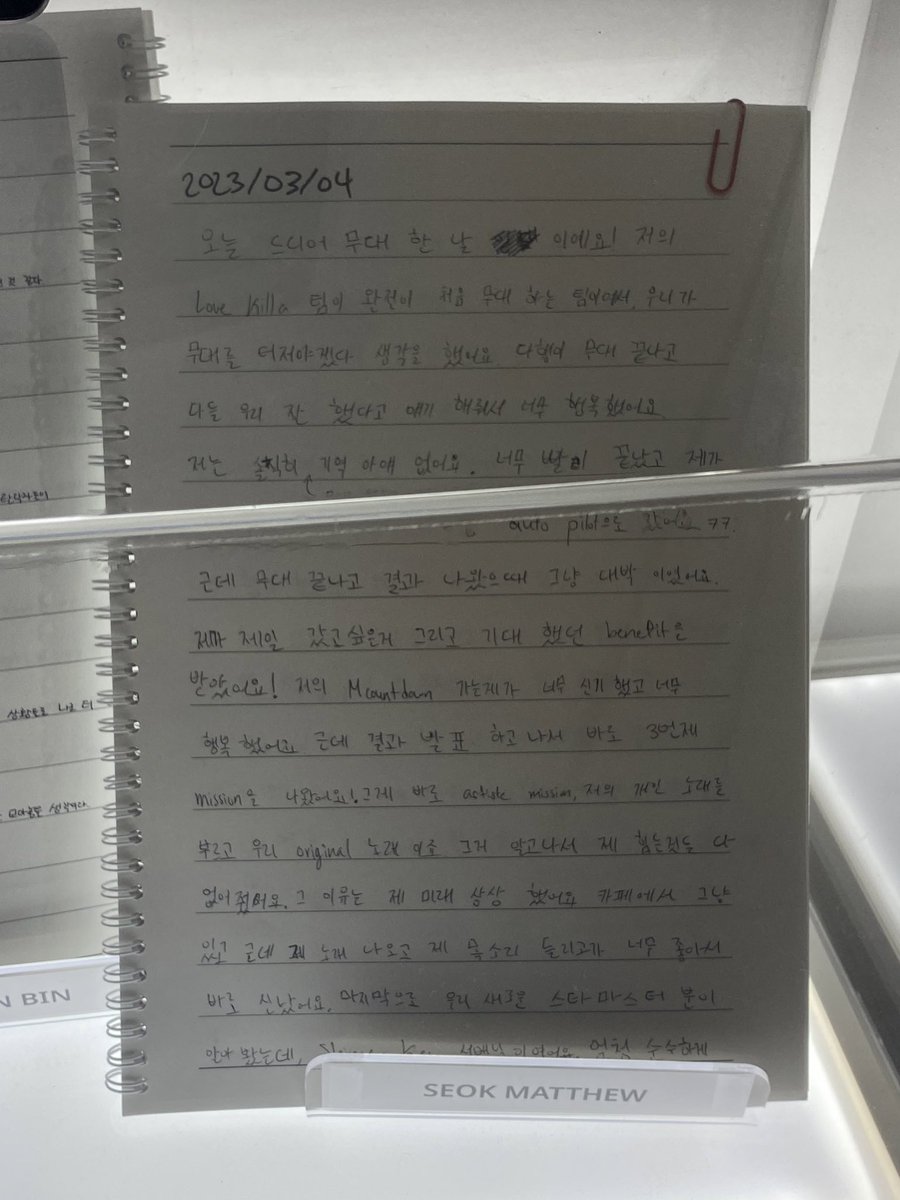 2023/03/04
오늘 드디어 무대 한 날 이에요! 저의
Love Killa 팀이 완전이 처음 무대 하는 팀이여서, 우리가
무대를 더저야겠다 생각을 했어요. 다행이 무대 끝나고
다들 우리 잔 했다고 얘기 해줘서 너무 행복했어요
저는 솔직히 기억 아얘 없어요. 너무 빨리 끝났고 제가
auto pilot으로 갔어요 ㅋㅋ.
근데 무대 끝나고 결과 나왔으때 그냥 대박 이었어요.
저가 제일 갔고싶은거 그리고 기대 했던 benefit을
받았어요! 저의 Mcountdown 가는제가 너무 신기했고 너무
행복했어요 근데 결과 발표 하고 나서 바로 3번제
mission을 나왔어요! 그게 바로 artist mission, 저의 개인 노래를
부르고 우리 original 노래 이죠 그거 알고나서 제 힘든것도 다
없어졌어요. 그 이유는 제 미래 상상 했어요 카페에서 그냥
있고 근데 제 노래 나오고 제 목소리 들리고가 너무 좋아서
바로 신났어요. 마지막으로 우리 새로운 스타마스터 분이
SEOK MATTHEW
N BIN